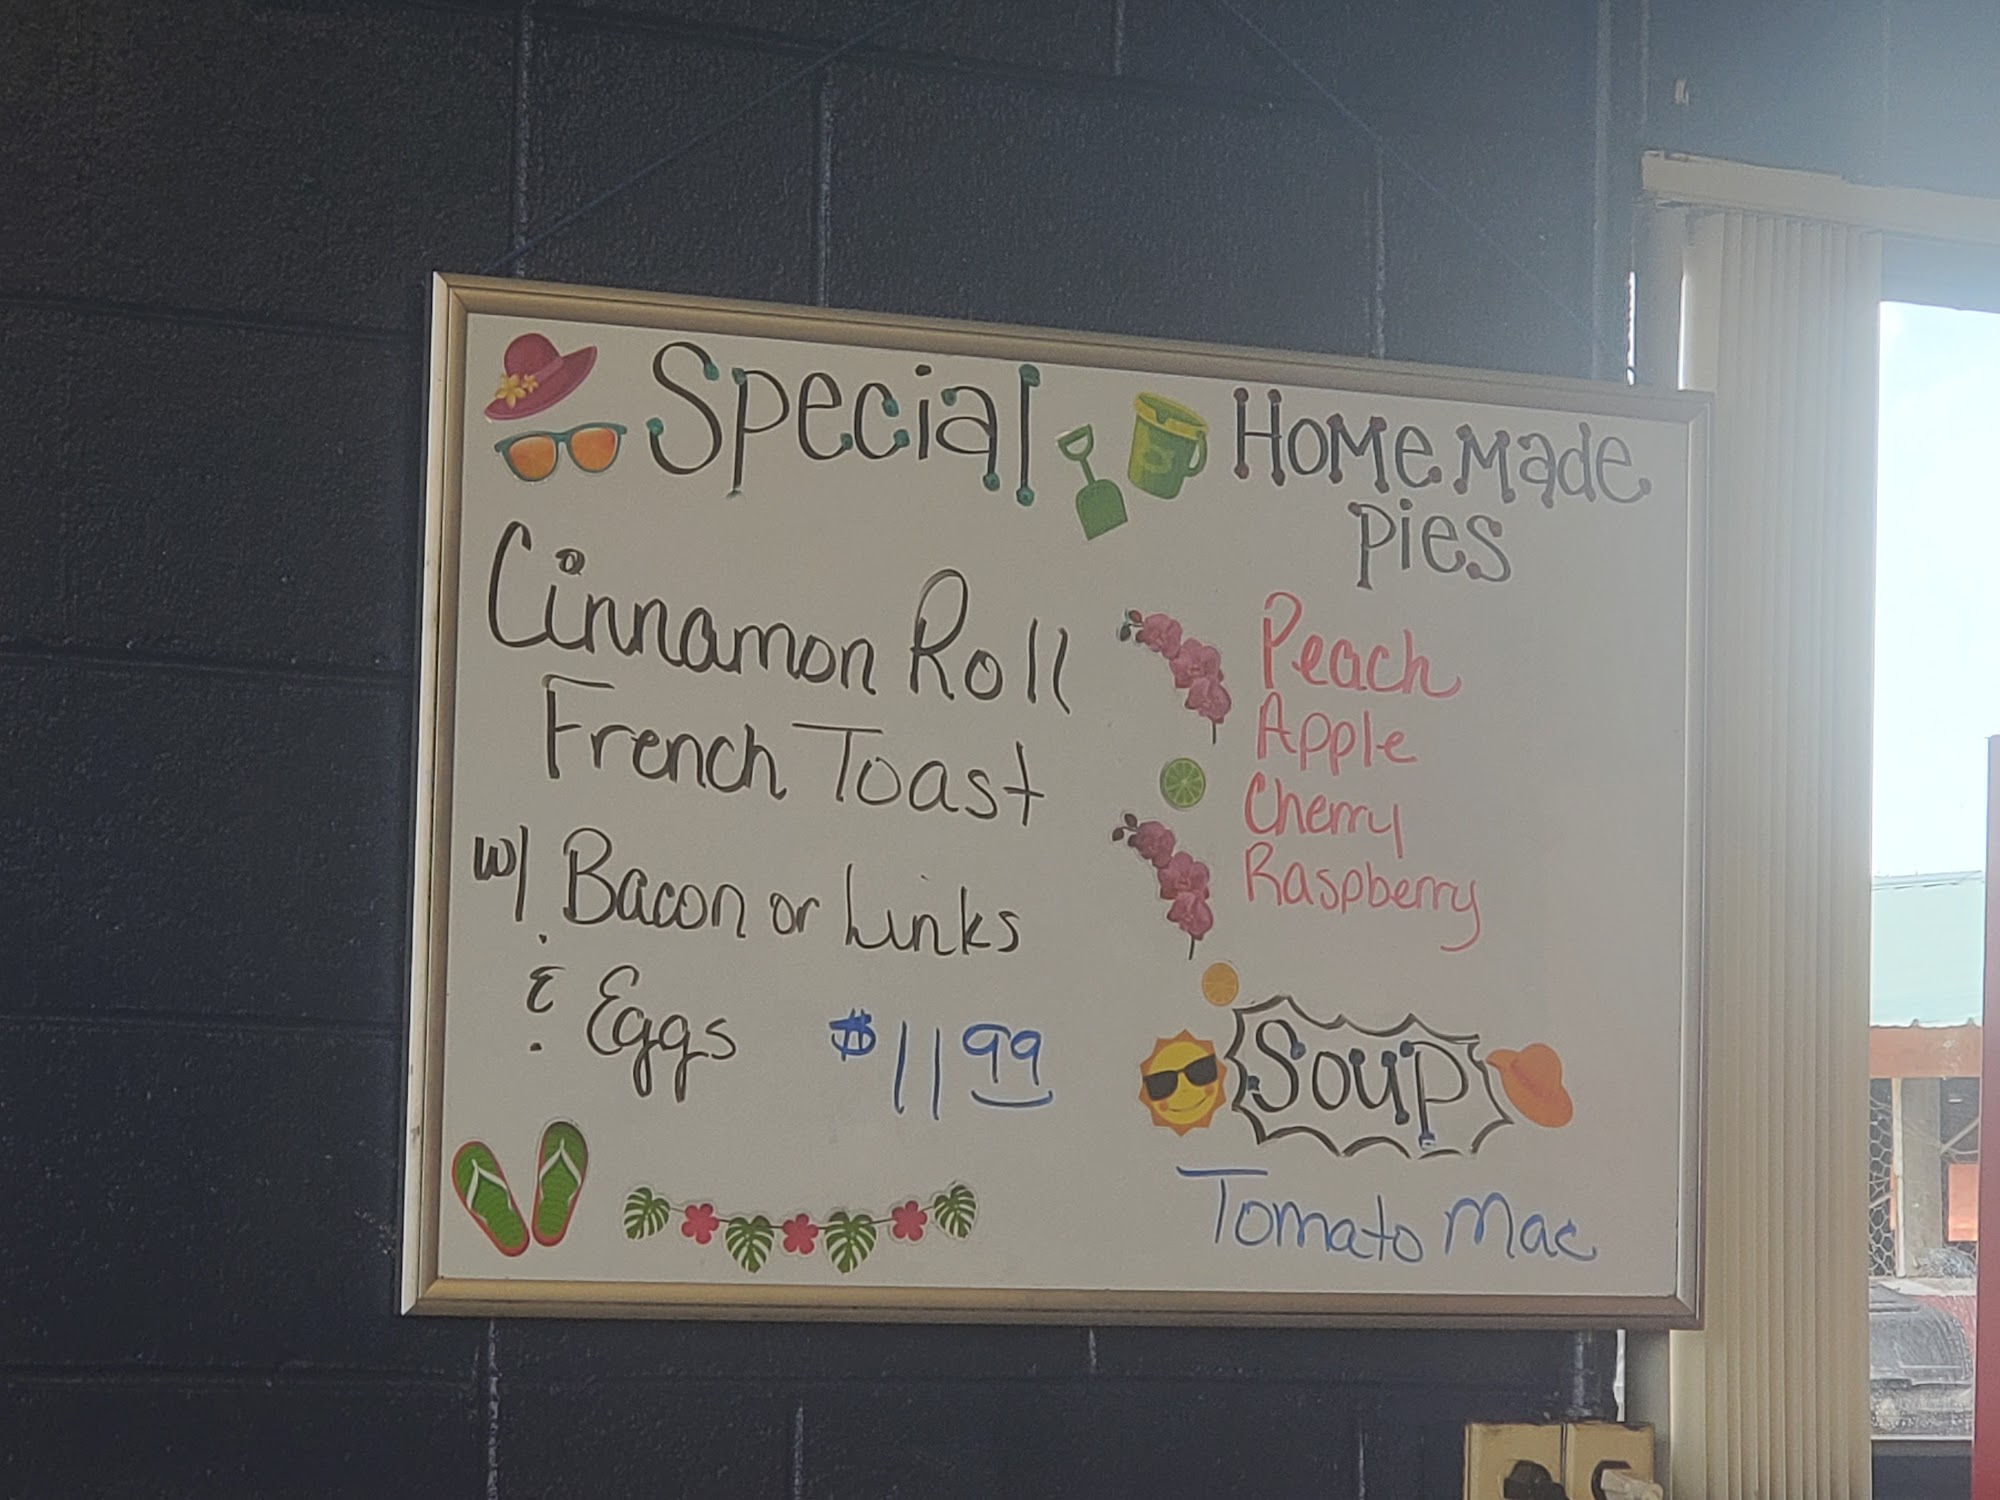 Special
Cinnamon Roll
French Toast
w/ Bacon or Links
& Eggs $11 99
Homemade
Pies
Peach
Apple
Cherry
Raspberry
Soup
Tomato Mac